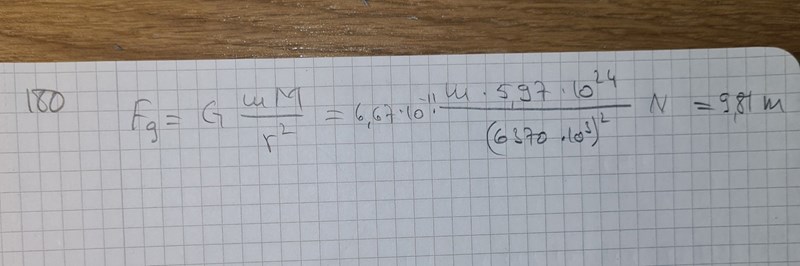 180 Fg = G mM/r² = 6,67·10⁻¹¹· m · 5,97 · 10²⁴/(6370 · 10³)² N = 9,81 m